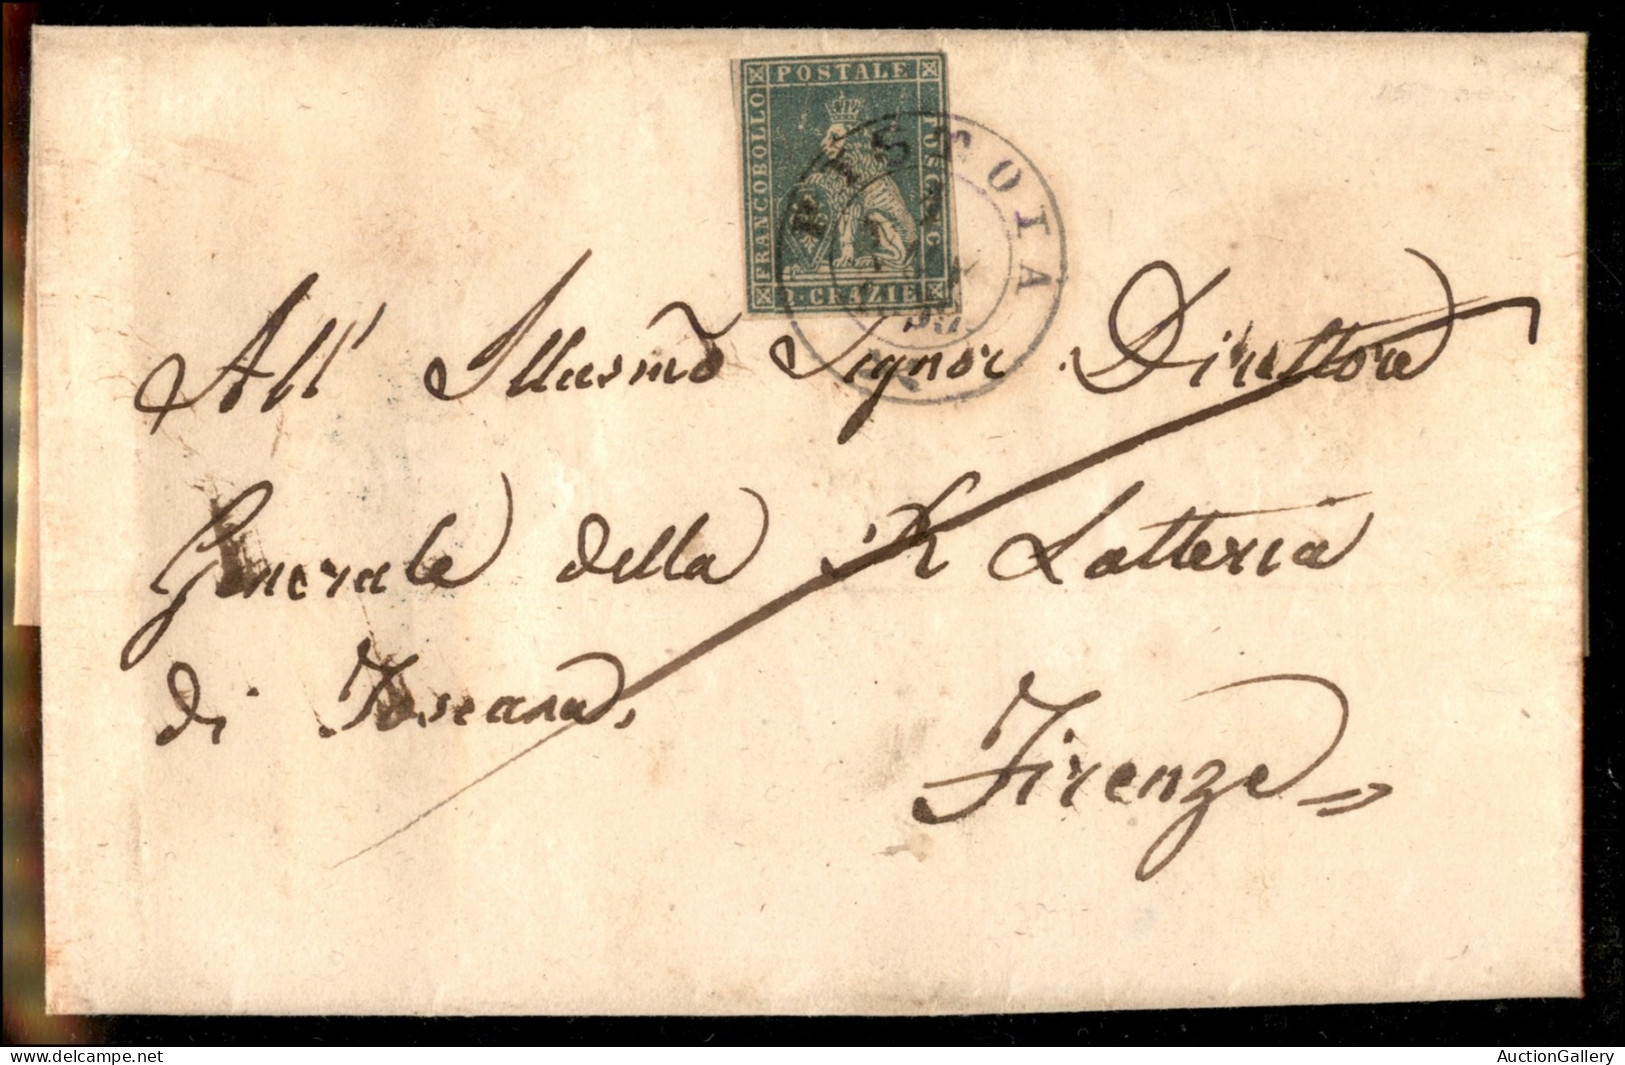 POSTALE
FRANCOBOLLO
TOSCANO
2. CRAZIE
PISTOIA
All' Illusmo Signor Direttore
Generale della R Lotteria
di Toscana,
Firenze
AuctionGallery